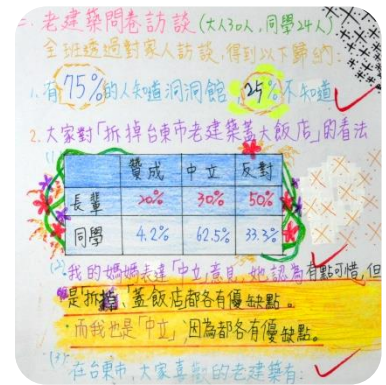 二.老建築問卷訪談(大人30人,同學24人)
全班透過對家人訪談,得到以下歸納:
1.有75%的人知道洞洞館,25%不知道
2.大家對「拆掉台東市老建築蓋大飯店」的看法
(1)
贊成 中立 反對
長輩 20% 30% 50%
同學 4.2% 62.5% 33.3%
(2).我的媽媽表達「中立」意見,她認為有點可惜,但
是拆掉、蓋飯店都各有優缺點。
·而我也是「中立」,因為都各有優缺點。
在台東市,大家喜歡的老建築有: